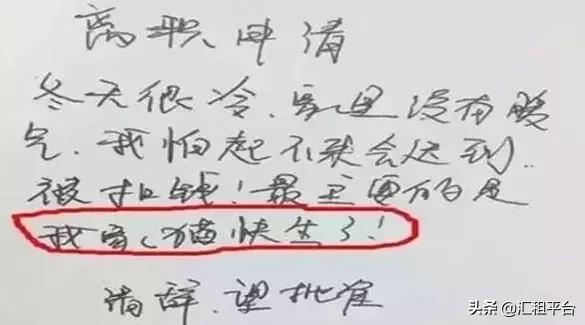 离职申请
冬天很冷.家里没有暖
气.我怕起不来会迟到.
被扣钱!最主要的是
我家猫快生了!
请辞.望批准
头条 @汇租平台